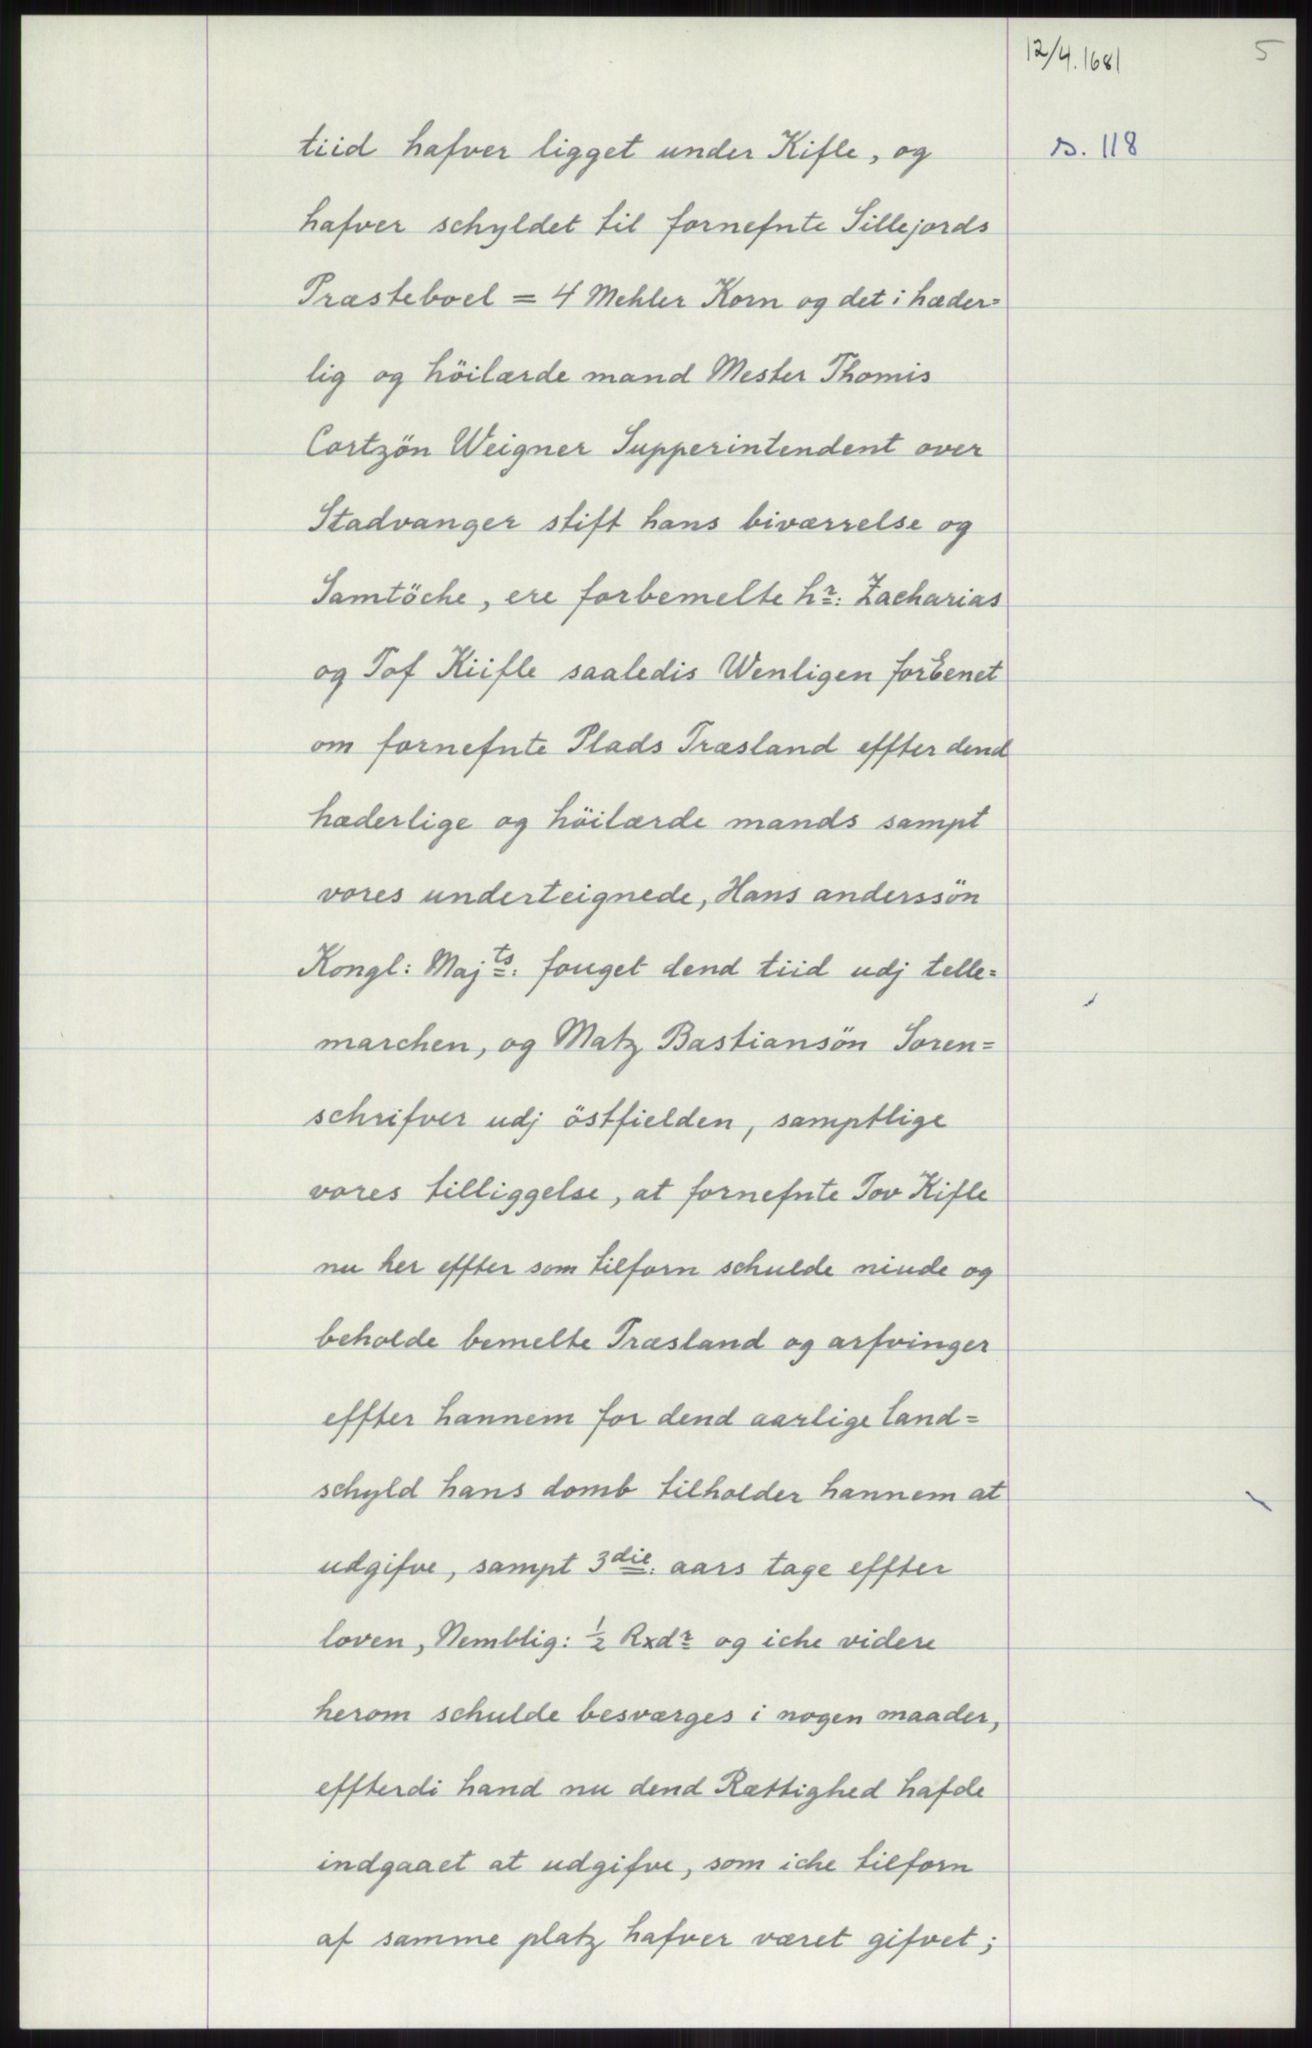 12/4.1681
5
s. 118
tiid hafver ligget under Kifle, og
hafver schyldet til fornefnte Sillejords
Præsteboel = 4 Mehler Korn og det i hæder=
lig og höilærde mand Mester Thomis
Cortzön Weigner Supperintendent over
Stadvanger stift hans biværrelse og
Samtöche, ere forbemelte hr: Zacharias
og Tof Kiifle saaledis Wenligen forEenet
om fornefnte Plads Træsland effter dend
hæderlige og höilærde mands sampt
vores underteignede, Hans anderssön
Kongl: Majts: fouget dend tiid udj telle=
marchen, og Matz Bastiansön Soren=
schrifver udj östfielden, samptlige
vores tilliggelse, at fornefnte Tov Kifle
nu her effter som tilforn schulde niude og
beholde bemelte Træsland og arfvinger
effter hannem for dend aarlige land=
schyld hans domb tilholder hannem at
udgifve, sampt 3die: aars tage effter
loven, Nemblig: ½ Rxdr og iche videre
herom schulde besværges i nogen maader,
effterdi hand nu dend Rættighed hafde
indgaaet at udgifve, som iche tilforn
af samme platz hafver været gifvet;